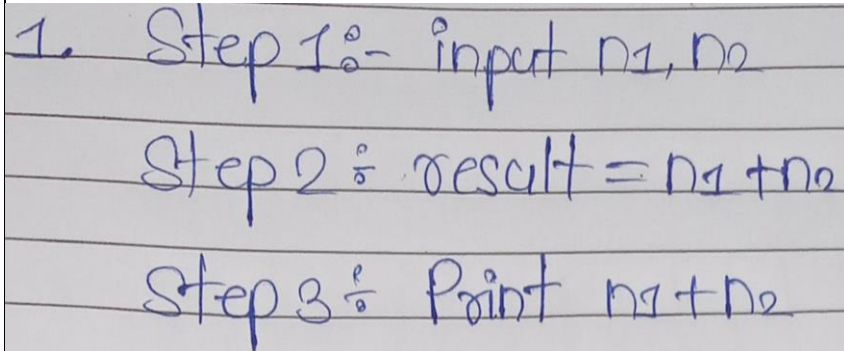 1. Step 1:- input n1, n2
Step 2:- result = n1 + n2
Step 3:- Print n1 + n2